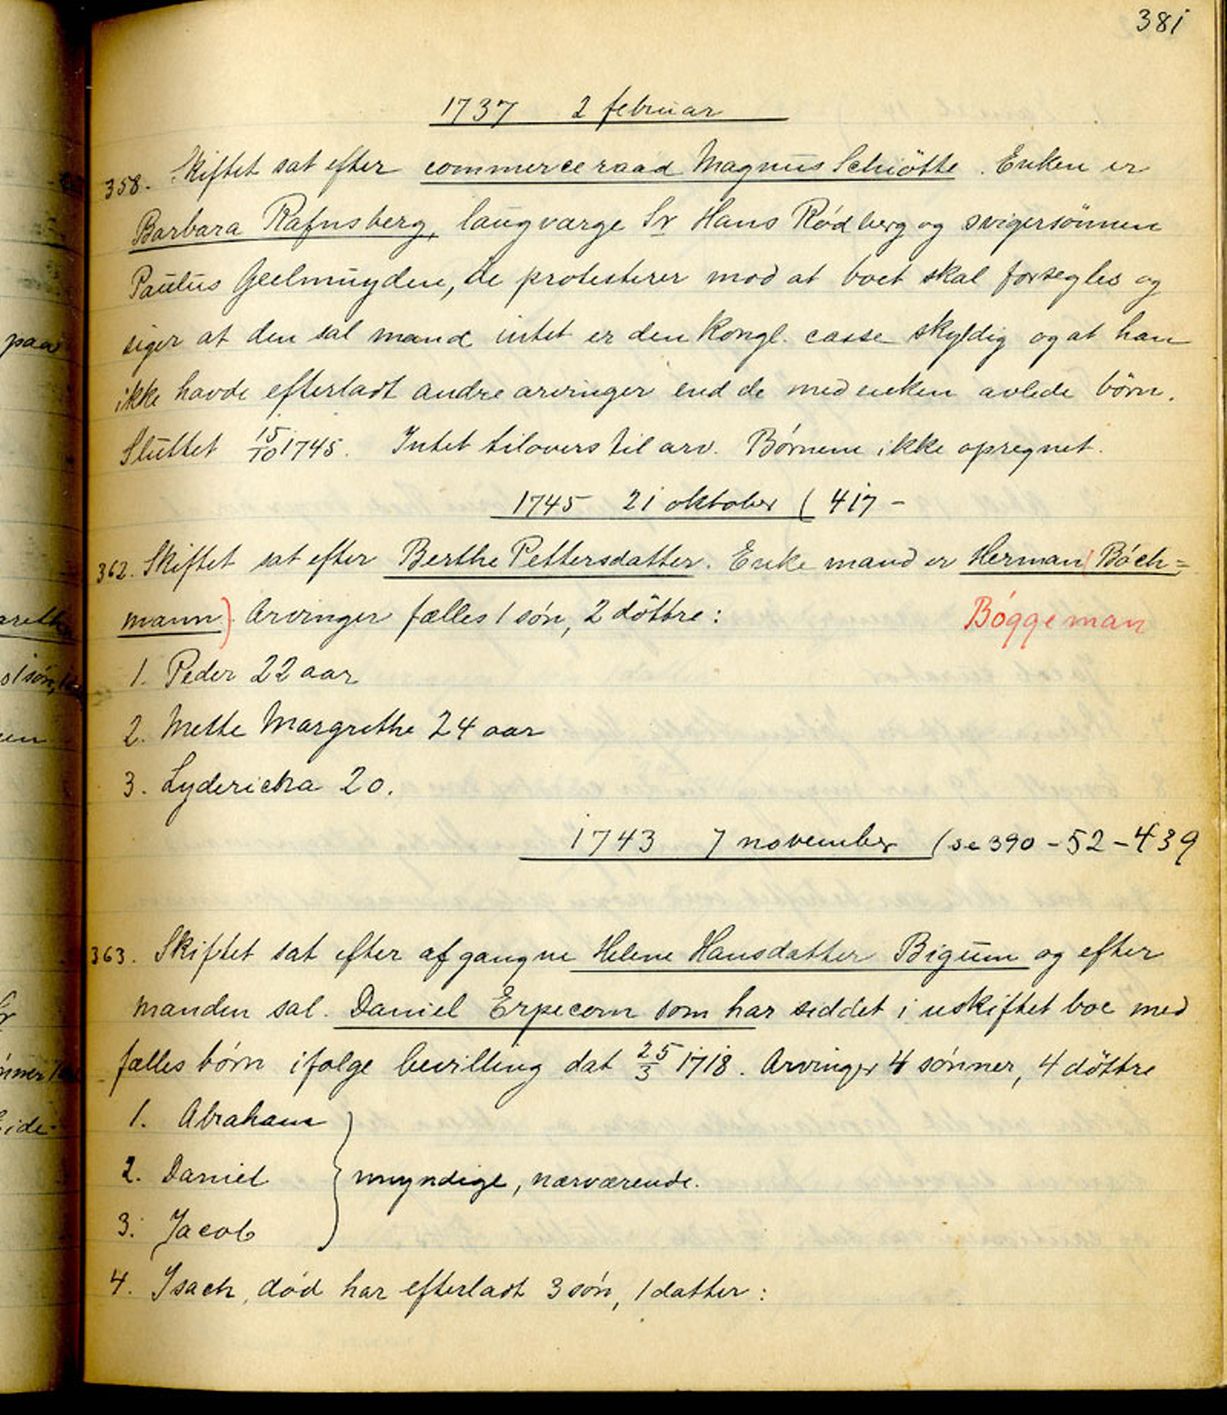 381
1737 2 februar
358. Skiftet sat efter commerceraad Magnus Schiötte. Enken er
Barbara Rafnsberg, laugværge Sr Hans Rödberg og svigersönnen
Paulus Geelmuyden, de protesterer mod at boet skal forsegles og
paa
siger at den sal mand intet er den Kongl. casse skyldig og at han
ikke havde efterladt andre arvinger end de med enken avlede börn.
Sluttet 15/10 1745. Intet tilovers til arv. Börnene ikke opregnet.
1745 21 oktober (417 -
362. Skiftet sat efter Berthe Pettersdatter. Enkemand er Herman (Böch=
mann). Arvinger fælles 1 sön, 2 döttre: Böggeman
1. Peder 22 aar
2. Mette Margrethe 24 aar
3. Lydericha 20.
1743 7 november (se 390 - 52 - 439
363. Skiftet sat efter afgangne Helene Hansdatter Bigum og efter
manden sal. Daniel Erpecom som har siddet i uskiftet boe med
fælles börn ifølge bevilling dat 25/3 1718. Arvinger 4 sönner, 4 döttre
1. Abraham
2. Daniel } myndige, nærværende.
3. Jacob
4. Isach, död har efterladt 3 sön, 1 datter: